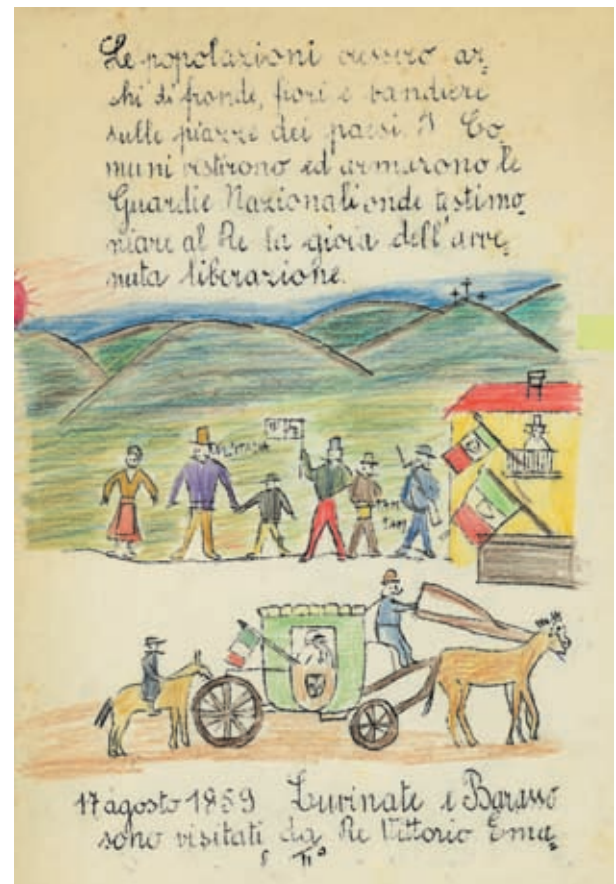 Le popolazioni eressero ar-
chi di fronde, fiori e bandiere
sulle piazze dei paesi. I Co-
muni vestirono ed armarono le
Guardie Nazionali onde testimo-
niare al Re la gioia dell'avve-
nuta liberazione.
PAM
TAM
17 agosto 1859 Luvinate e Barasso
sono visitati da Re Vittorio Ema-
II°